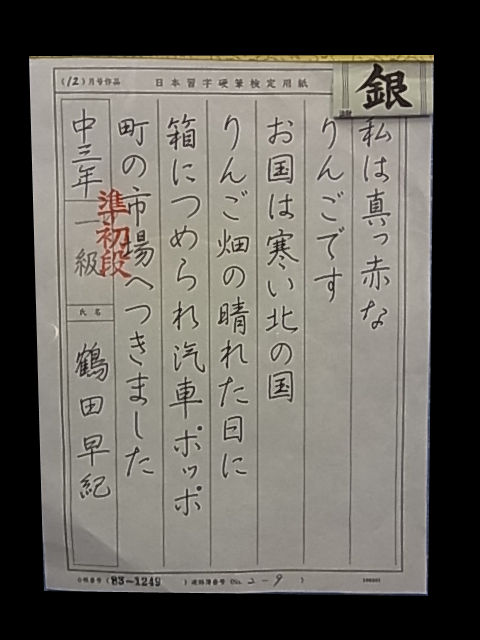 (12)月号作品
日本習字硬筆検定用紙
銀
私は真っ赤な
りんごです
お国は寒い北の国
りんご畑の晴れた日に
箱につめられ汽車ポッポ
町の市場へつきました
中三年
一級
準初段
氏名
鶴田早紀
(83-1249)
(No. 2-9)